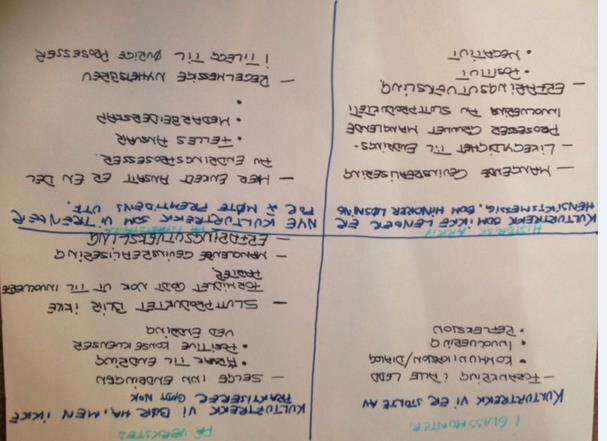 I GLASSMONTER.
KULTURTREKK VI ER STOLTE AV
— FORANKRING I ALLE LEDD
• KOMMUNIKASJON/DIALOG
• INVOLVERING
• REFLEKSJON
PÅ VERKSTED
KULTURTREKK VI BØR HA, MEN IKKE
PRAKTISERER GODT NOK
— SELGE INN ENDRINGEN
• ÅRSAK TIL ENDRING
• POSITIVE KONSEKVENSER
VED ENDRING
— SLUTTPRODUKTET BLIR IKKE
FORMIDLET GODT NOK UT TIL INVOLVERTE
PARTER
— MANGLENDE GEVINSREALISERING
— ERFARINGSUTVEKSLING
HISTORISK ARKIV
KULTURTREKK SOM IKKE LENGER ER
HENSIKTSMESSIG, SOM HINDRER LØSNING
— MANGLENDE GEVINSREALISERING
— LIKEGYLDIGHET TIL ENDRINGS-
PROSESSER GRUNNET MANGLENDE
INVOLVERING AV SLUTTPRODUKTET
— ERFARINGSUTVEKSLING
• POSITIVT
• NEGATIVT
PÅ
NYE KULTURTREKK SOM VI TRENGER
FOR Å MØTE FREMTIDENS UTF.
— HVER ENKELT ANSATT ER EN DEL
AV ENDRINGSPROSESSER.
• FELLES ANSVAR
• MEDARBEIDERSKAP
•
— REGELMESSIGE NYHETSBREV
I TILLEGG TIL ØVRIGE PROSESSER